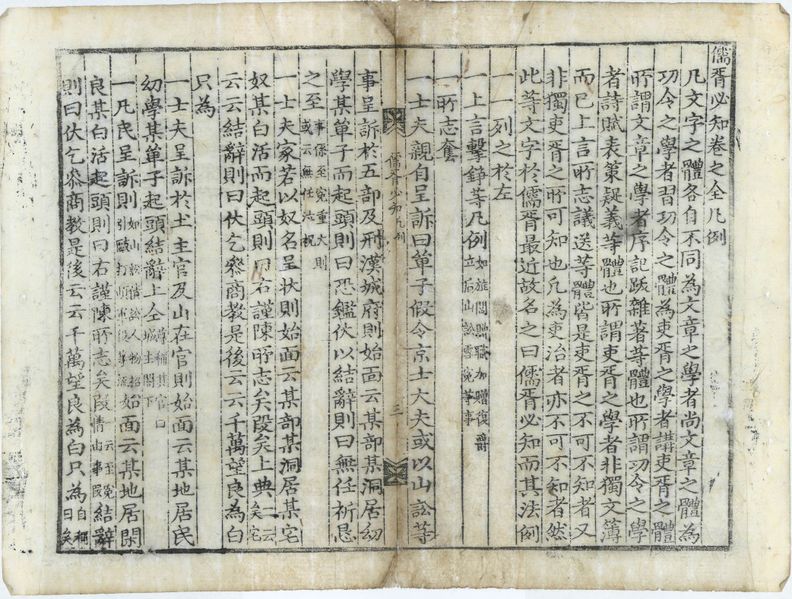 儒胥必知卷之全凡例
凡文字之體各自不同為文章之學者尚文章之體為
功令之學者習功令之體為吏胥之學者講吏胥之體
所謂文章之學者序記跋雜著等體也所謂功令之學
者詩賦表策疑義等體也所謂吏胥之學者非獨文簿
而已上言所志議送等體皆是吏胥之不可不知者又
非獨吏胥之所可知也凡為吏治者亦不可不知者然
此等文字於儒胥最近故名之曰儒胥必知而其法例
一一列之於左
一上言擊錚等凡例如旌閭贈職加贈復爵立后山訟雪冤等事
一所志套
一士夫親自呈訴曰單子假令京士大夫或以山訟等
儒胥必知凡例
三
事呈訴於五部及刑漢城府則始面云某部某洞居幼
學某單子而起頭則曰恐鑑伏以結辭則曰無任祈恳
之至事係至冤重大則或云無任泣祝
一士夫家若以奴名呈狀則始面云某部某洞居某宅
奴某白活而起頭則曰右謹陳所志矣段矣上典云云矣宅
云云結辭則曰伏乞叅商教是後云云千萬望良為白
只為
一士夫呈訴於土主官及山在官則始面云某地居民
幼學某單子起頭結辭上仝尊稱其官曰城主閤下
一凡民呈訴則始面云某地居閑
良某白活起頭則曰右謹陳所志矣段情由事段云至冤結辭
則曰伏乞叅商教是後云云千萬望良為白只為自稱曰矣